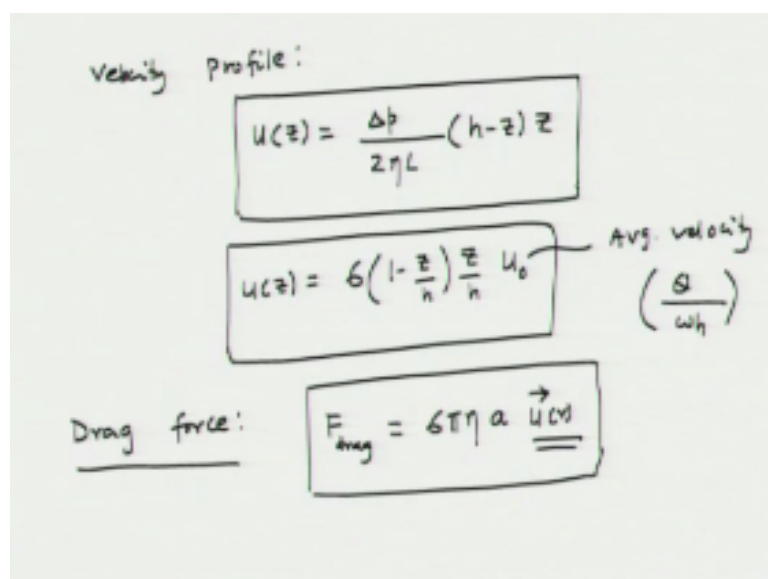 Velocity Profile:
u(z) = Δp / 2ηL (h-z) z
u(z) = 6(1 - z/h) z/h u₀
Avg. velocity
(Q / wh)
Drag force:
F_drag = 6πη a u(r)